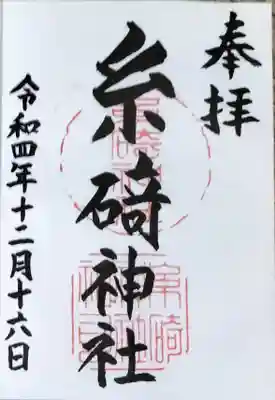 奉拝
糸碕神社
令和四年十二月十六日